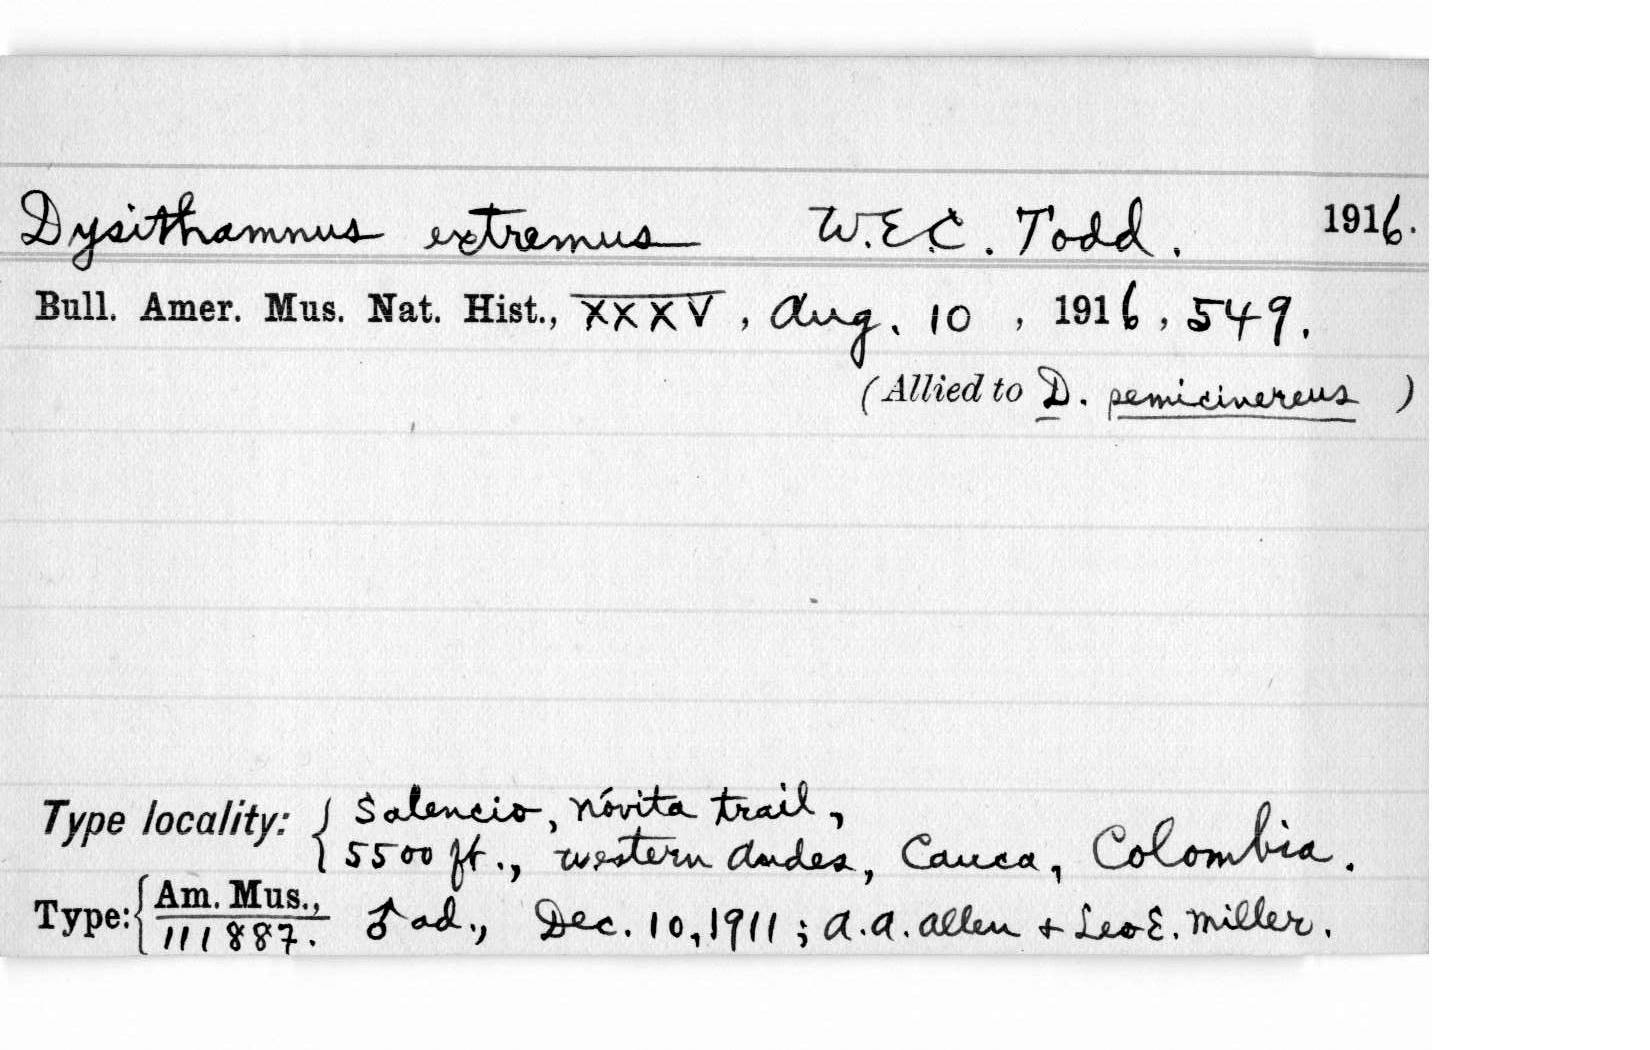 Dysithamnus extremus W.E.C. Todd. 1916.
Bull. Amer. Mus. Nat. Hist., XXXV, Aug. 10, 1916, 549.
(Allied to D. semicinereus)
Type locality: { Salencio, Nóvita trail,
5500 ft., western Andes, Cauca, Colombia.
Type: { Am. Mus., ♂ ad., Dec. 10, 1911; A.A. Allen + Leo E. Miller.
111887.